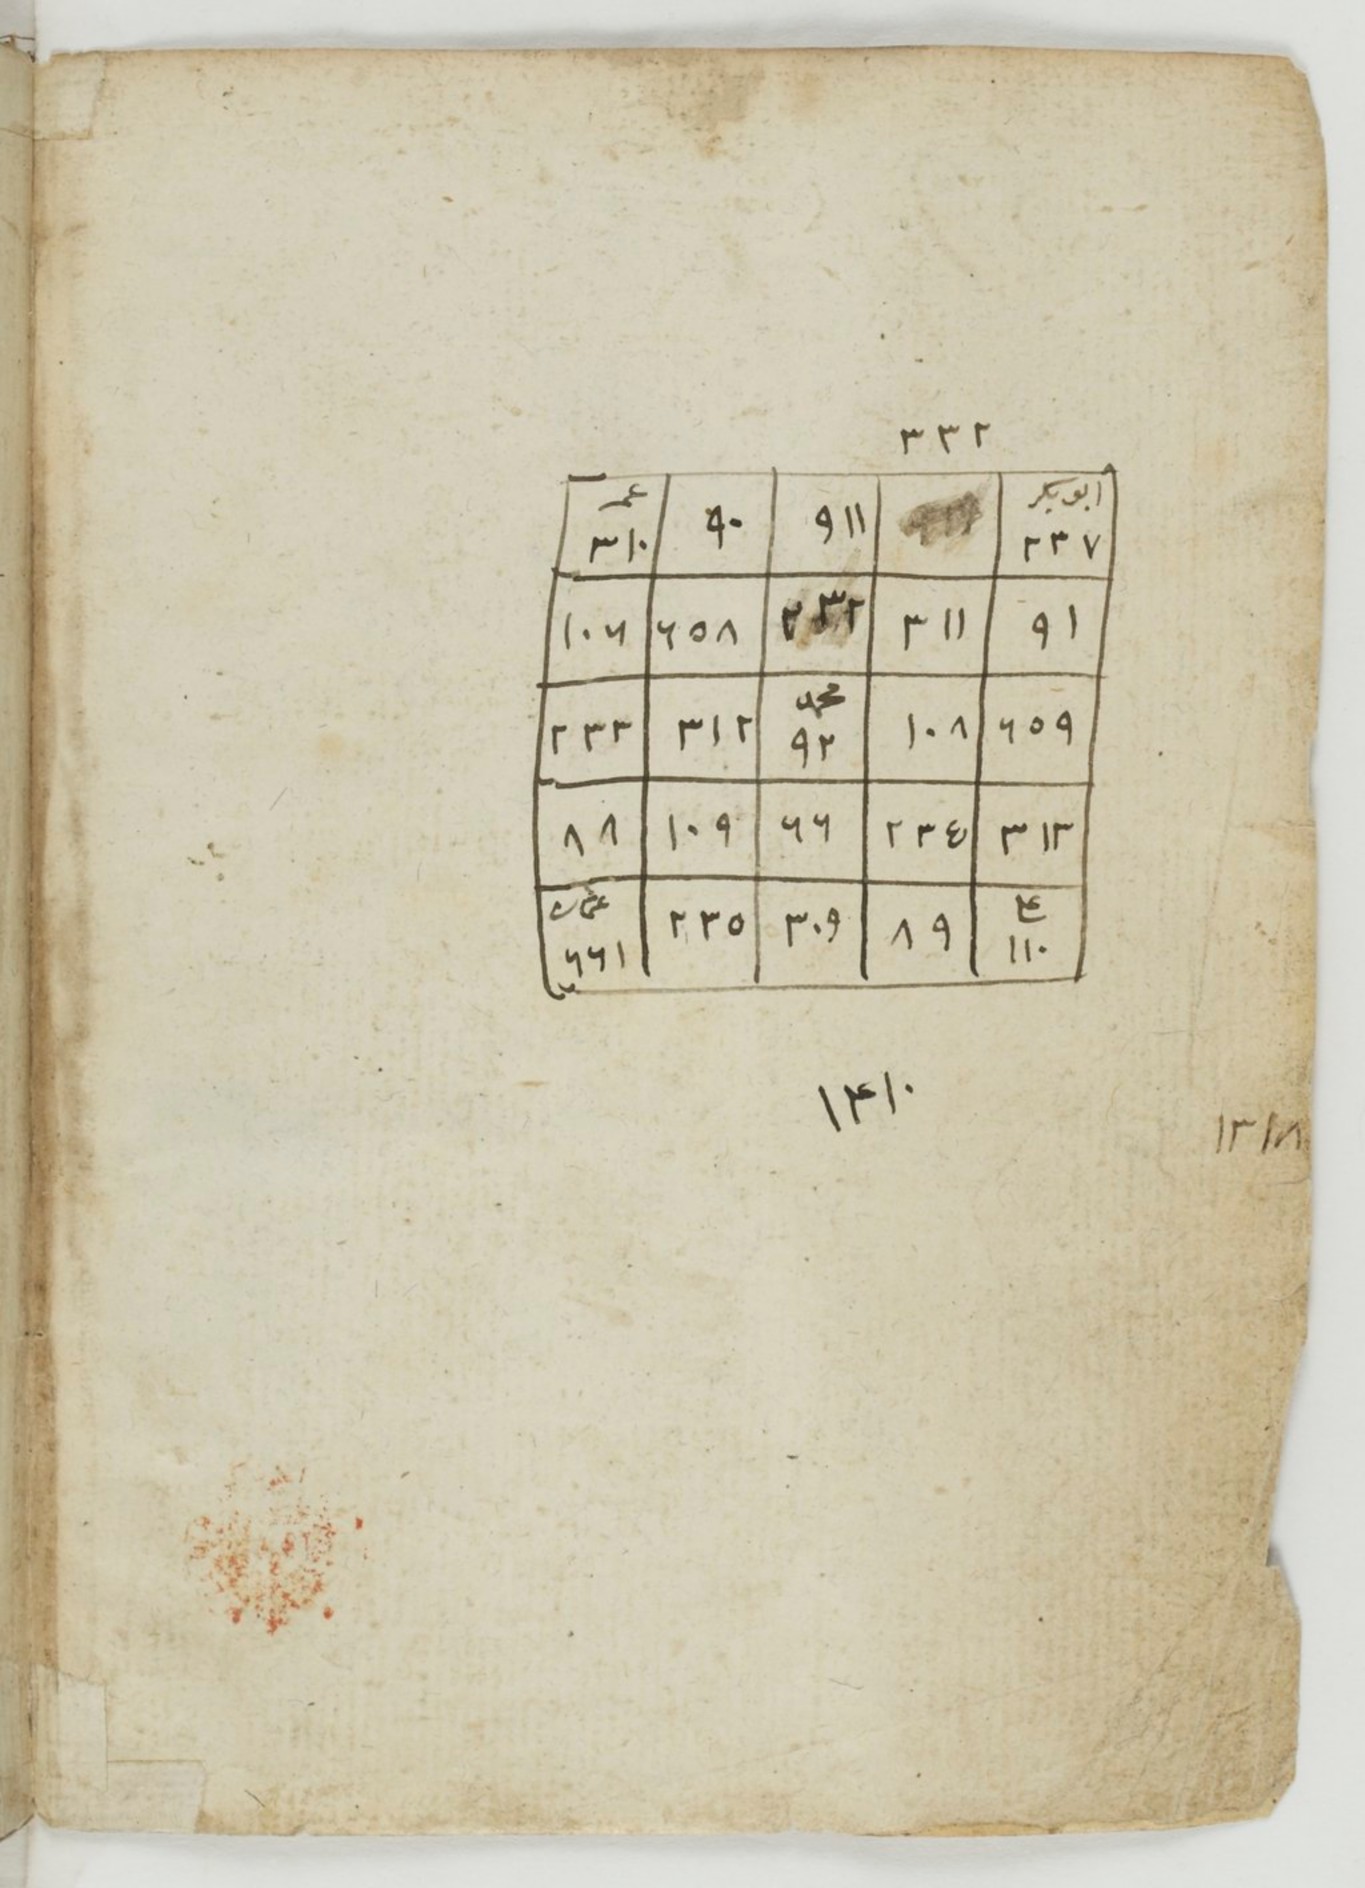 ٣٣٢
ابوبكر عمر
٢٣٧ ٩١١ ٩٠ ٣١٠
٩١ ٣١١ ٢٣٢ ٦٥٨ ١٠٦
محمد
٦٥٩ ١٠٨ ٩٢ ٣١٢ ٢٣٣
٣١٣ ٢٣٤ ٦٦ ١٠٩ ٨٨
علي عثمان
١١٠ ٨٩ ٣٠٩ ٢٣٥ ٦٦١
١٤١٠
١٣١٨